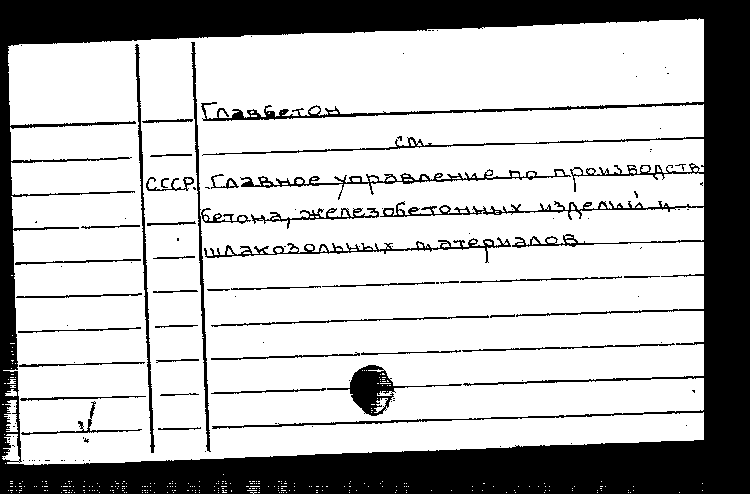 Главбетон
см.
СССР. Главное управление по производств
бетона, железобетонных изделий и
шлакозольных материалов.